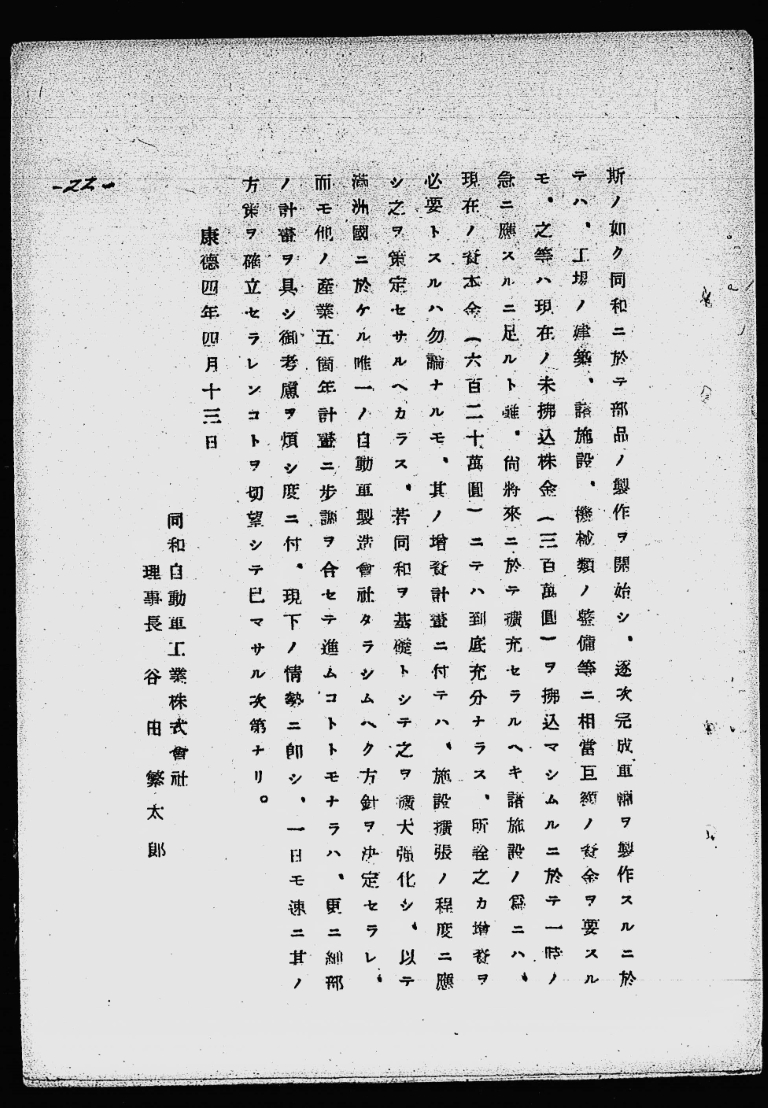 斯ノ如ク同和ニ於テ部品ノ製作ヲ開始シ、逐次完成車輛ヲ製作スルニ於
テハ、工場ノ建築、諸施設、機械類ノ整備等ニ相當巨額ノ資金ヲ要スル
モ、之等ハ現在ノ未拂込株金(三百萬圓)ヲ拂込マシムルニ於テ一時ノ
急ニ應スルニ足ルト雖、尙將來ニ於テ擴充セラルヘキ諸施設ノ爲ニハ、
現在ノ資本金(六百二十萬圓)ニテハ到底充分ナラス、所詮之カ增資ヲ
必要トスルハ勿論ナルモ、其ノ增資計畫ニ付テハ、施設擴張ノ程度ニ應
シ之ヲ策定セサルヘカラス、若同和ヲ基礎トシテ之ヲ擴大强化シ、以テ
滿洲國ニ於ケル唯一ノ自動車製造會社タラシムヘク方針ヲ決定セラレ、
而モ他ノ產業五箇年計畫ニ步調ヲ合セテ進ムコトトモナラハ、更ニ細部
ノ計畫ヲ具シ御考慮ヲ煩シ度ニ付、現下ノ情勢ニ卽シ、一日モ速ニ其ノ
方策ヲ確立セラレンコトヲ切望シテ已マサル次第ナリ。
康德四年四月十三日
同和自動車工業株式會社
理事長 谷田繁太郎
-22-